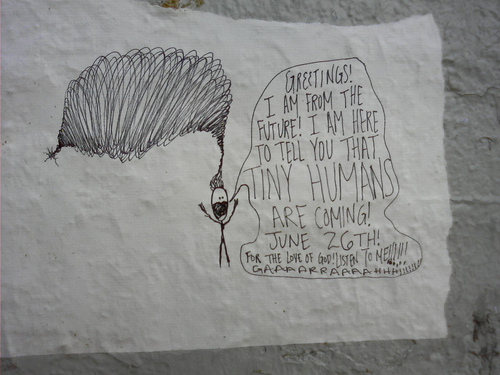 GREETINGS!
I AM FROM THE
FUTURE! I AM HERE
TO TELL YOU THAT
TINY HUMANS
ARE COMING!
JUNE 26TH!
FOR THE LOVE OF GOD! LISTEN TO ME!!!!!!
GAAAARRAAAAHHH!!!!!!!